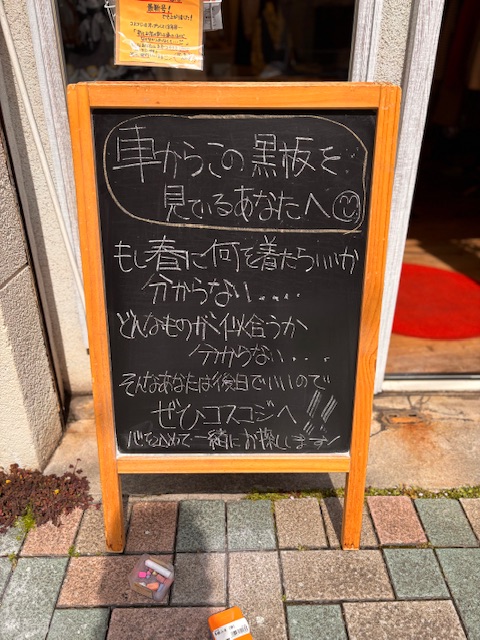 車からこの黒板を
見ているあなたへ
もし春に何を着たらいいか
分からない....
どんなものが似合うか
分からない...
そんなあなたは後日でいいので
ぜひコスコジへ!!!
心をこめて一緒にお探しします!